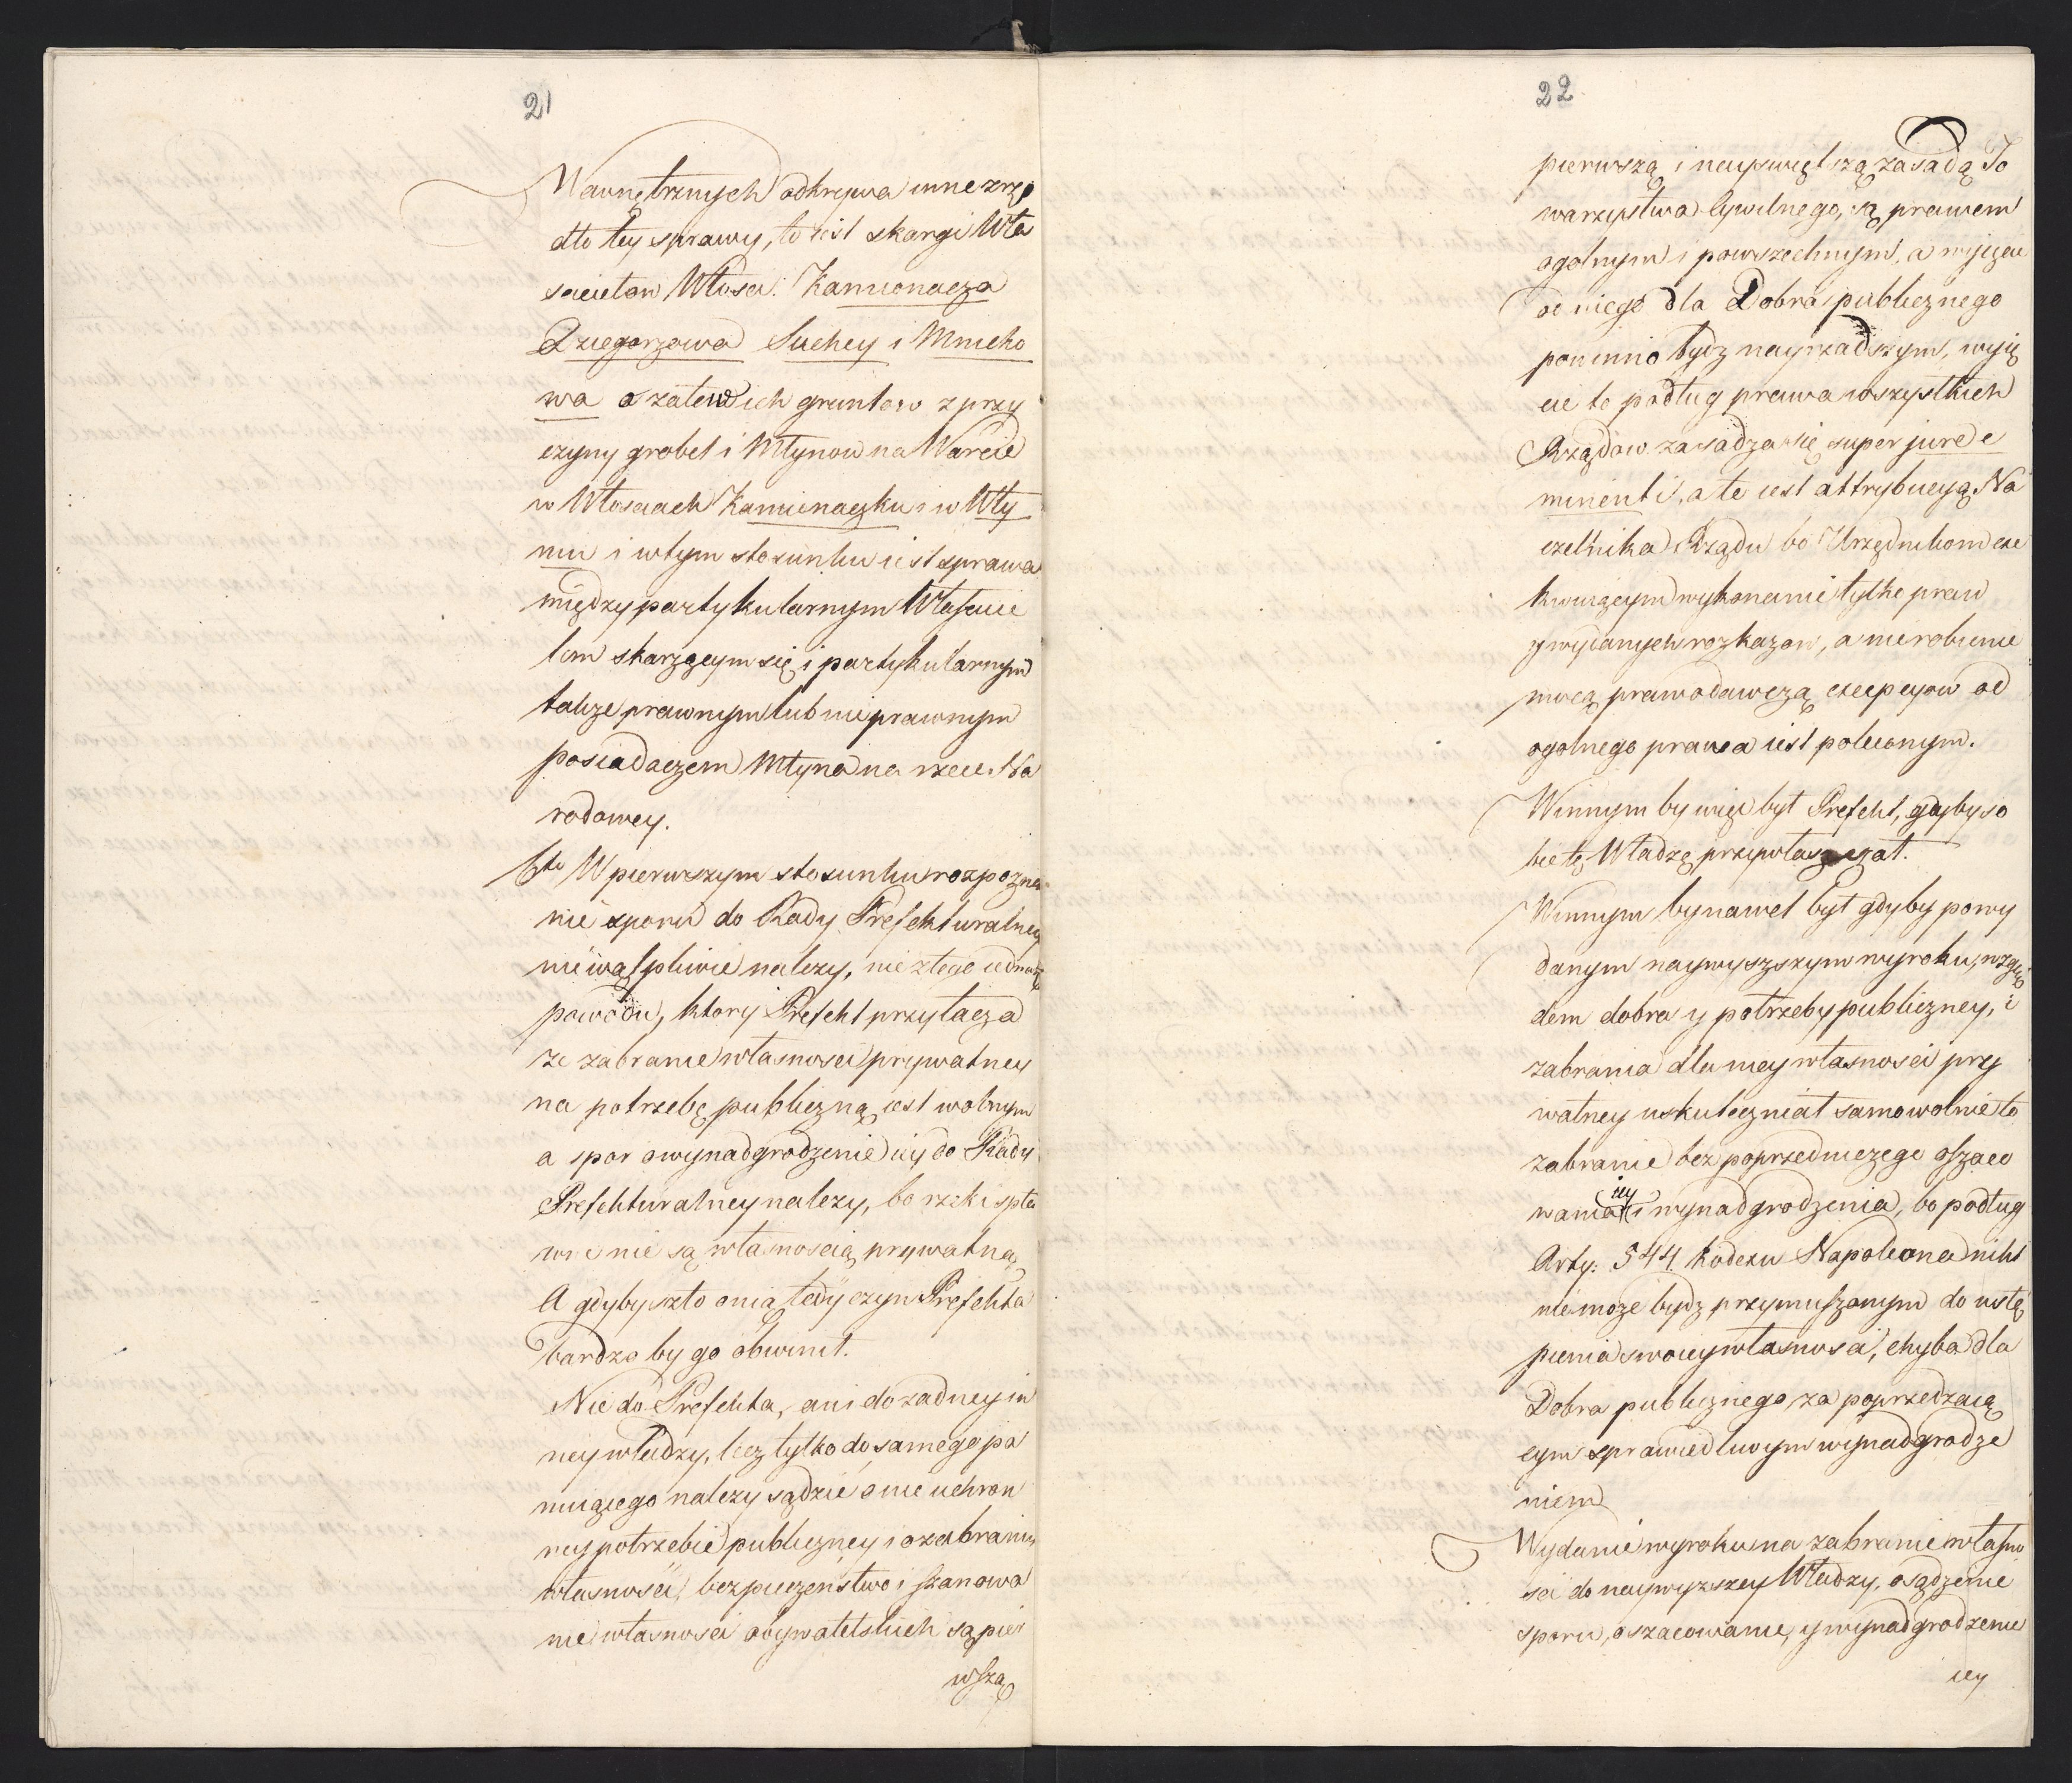 21
Wewnętrznych odkrywa inne zrzo
dło tey sprawy, to iest skargi Wła
scicielow Włosci. Kamionacza
Dziegorzowa Suchey i Mnicho
wa o zalew ich gruntow z przy
czyny grobel i Młynow na Warcie
w Włosciach Kamionaczku i w Wły
niu i w tym stosunku iest sprawa
między partykularnym Własicie
lem skarzącym się i partykularnym
także prawnym lub nieprawnym
posiadaczem Młyna na rzece Na
rodowey.
6to W pierwszym stosunku rozpozna
nie sporu do Rady Prefekturalney
niewątpliwie nalezy, nie z tego iednak
powodu, ktory Prefekt przytacza
ze zabranie własnosci prywatney
na potrzebę publiczną iest wolnym
a spor o wynadgrodzenie iey do Rady
Prefekturalney nalezy, bo rzeki spła
wne nie są własnoscią prywatną
A gdyby szło o nią tedy czyn Prefekta
bardzo by go obwinił.
Nie do Prefekta, ani do zadney in
ney władzy, lecz tylko do samego pa
nuiącego nalezy sądzić o nieuchron
ney potrzebie publiczney i o zabraniu
własnosci, bezpieczeństwo i szanowa
nie własnosci obywatelskich są pier
wszą
22
pierwszą i nayswiętszą zasadą To
warzystwa Cywilnego, są prawem
ogolnym i powszechnym, a wyjęcie
od niego dla Dobra publicznego
powinno bydz nayrzadszym, wyię
cie to podług prawa wszystkich
Rządow zasadza się super jure e
minenti, a te iest attrybucyą Na
czelnika Rządu bo Urzędnikom exe
kwuiącym wykonanie tylko praw
y wydanych rozkazow, a nie robienie
mocą prawodawczą excepcyow od
ogolnego prawa iest poleconym.
Winnym by więc był Prefekt, gdyby so
bie tę Władzę przywłaszczał.
Winnym by nawet był gdyby po wy
danym naywyszszym wyroku, wzglę
dem dobra y potrzeby publiczney, i
zabrania dla niey własnosci pry
watney uskuteczniał samowolnie to
zabranie bez poprzedniczego oszaco
wania iey i wynadgrodzenia, bo podług
Arty: 544 Kodexu Napoleona nikt
nie moze bydz przymuszonym do ustą
pienia swoiey własnosci, chyba dla
Dobra publicznego za poprzedzaią
cym sprawiedliwym wynadgrodze
niem
Wydanie wyroku na zabranie własno
sci do naywyzszey Władzy, osądzenie
sporu, oszacowanie, y wynadgrodzenie
iey